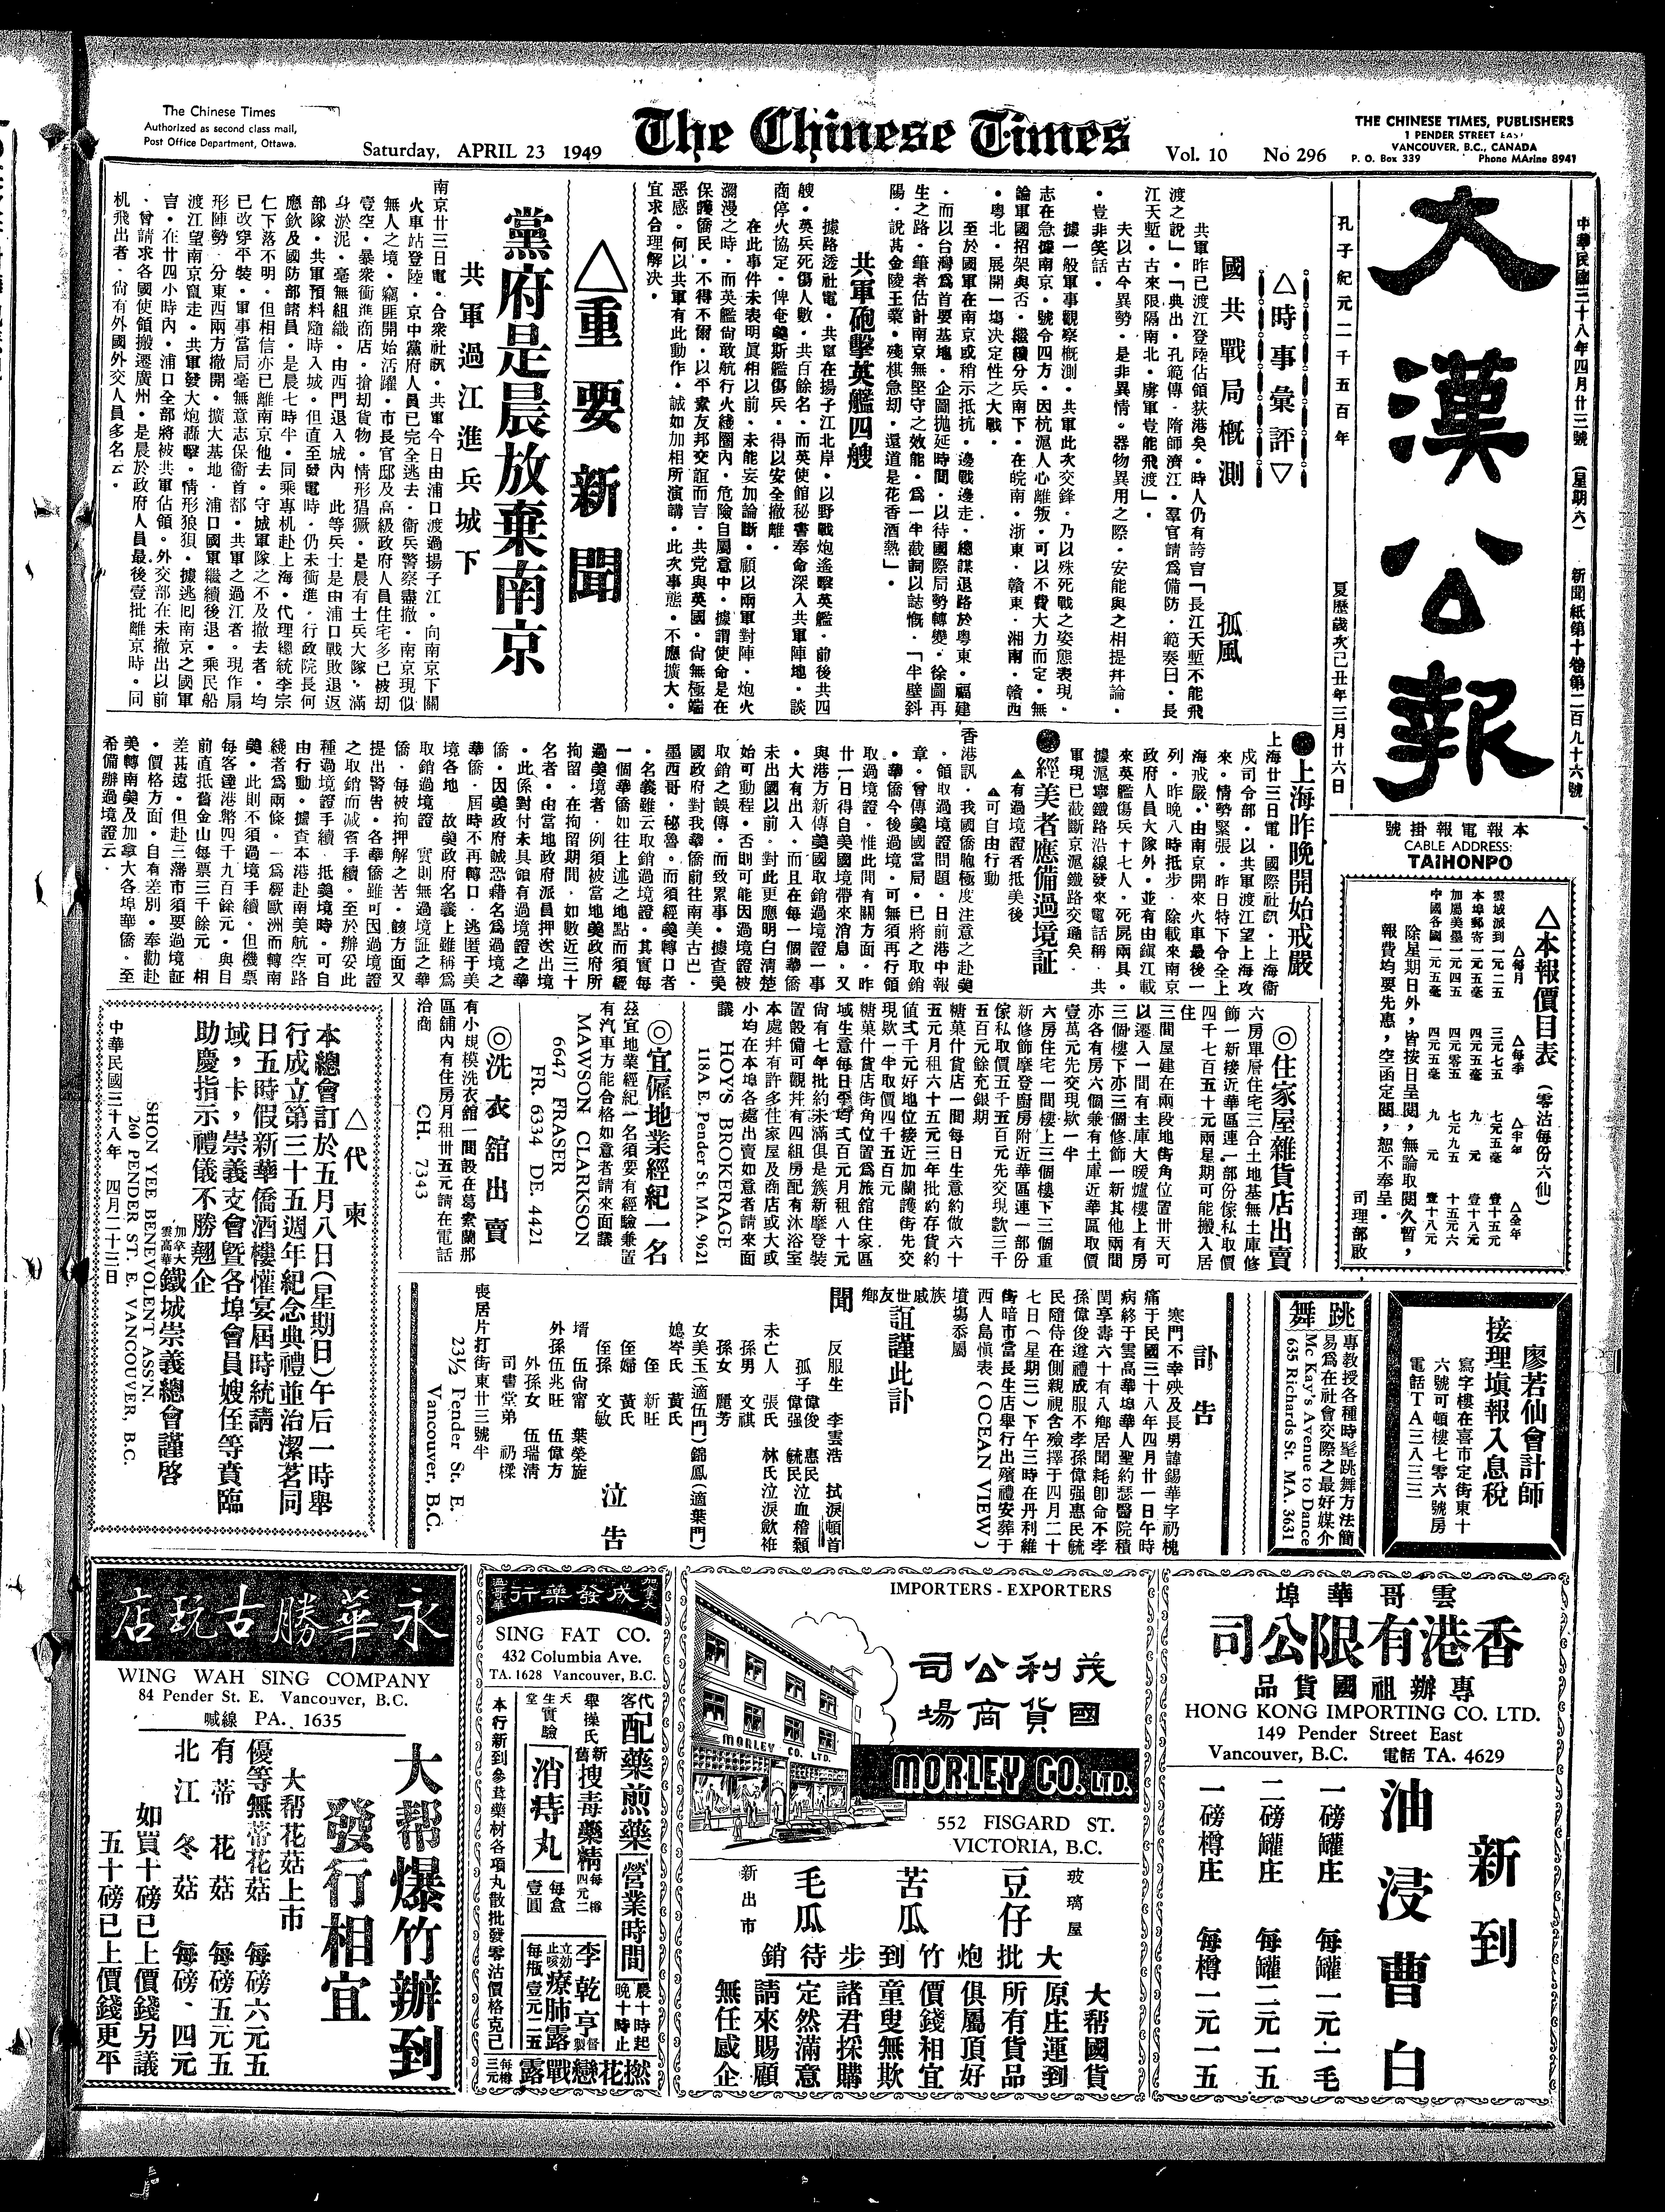 The Chinese Times
Authorized as second class mail,
Post Office Department, Ottawa.
Saturday, APRIL 23 1949
The Chinese Times
Vol. 10 No 296
THE CHINESE TIMES, PUBLISHERS
1 PENDER STREET EAST
VANCOUVER, B.C., CANADA
P. O. Box 339 Phone MArine 8941
中華民國三十八年四月廿三號 (星期六) 新聞紙第十卷第二百九十六號
大漢公報
孔子紀元二千五百年 夏歷歲次己丑年三月廿六日
號掛報電報本
CABLE ADDRESS:
TAIHONPO
△本報價目表 (零沽每份六仙)
△每月 △每季 △半年 △全年
雲城派到 一元二五 三元七五 七元五毫 壹十五元
本埠郵寄 一元五毫 四元五毫 九元 壹十八元
加屬美墨 一元四五 四元零五 七元九五 十五元六
中國各國 一元五毫 四元五毫 九元 壹十八元
除星期日外,皆按日呈閱,無論取閱久暫,
報費均要先惠,空函定閱,恕不奉呈。
司理部啟
△時事彙評▽
國共戰局概測 孤風
共軍昨已渡江登陸佔領荻港矣。時人仍有誇言「長江天塹不能飛
渡之說」。「典出。孔範傳。隋師濟江。羣官請為備防。範奏曰。長
江天塹。古來限隔南北。虜軍豈能飛渡」。
夫以古今異勢。是非異情。器物異用之際。安能與之相提幷論。
。豈非笑話。
據一般軍事觀察概測。共軍此次交鋒。乃以殊死戰之姿態表現。
志在急據南京。號令四方。因杭滬人心離叛。可以不費大力而定。無
論軍國招架與否。繼續分兵南下。在皖南。浙東。贛東。湘南。贛西
。粵北。展開一塲决定性之大戰。
至於國軍在南京或稍示抵抗。邊戰邊走。總謀退路於粵東。福建
。而以台灣為首要基地。企圖拋延時間。以待國際局勢轉變。徐圖再
生之路。筆者估計南京無堅守之效能。為一半截詞以誌慨。「半壁斜
陽。說甚金陵王業。殘棋急刧。還道是花香酒熱」。
共軍砲擊英艦四艘
據路透社電。共軍在揚子江北岸。以野戰炮遙擊英艦。前後共四
艘。英兵死傷人數。共百餘名。而英使館秘書奉命深入共軍陣地。談
商停火協定。俾奄美斯艦傷兵。得以安全撤離。
在此事件未表明眞相以前。未能妄加論斷。顧以兩軍對陣。炮火
瀰漫之時。而英艦尙敢航行火綫圈內。危險自屬意中。據謂使命是在
保護僑民。不得不爾。以平素友邦交誼而言。共党與英國。尙無極端
惡感。何以共軍有此動作。誠如加相所演講。此次事態。不應擴大。
宜求合理解决。
△重要新聞
黨府是晨放棄南京
共軍過江進兵城下
南京廿三日電。合衆社訊。共軍今日由浦口渡過揚子江。向南京下關
火車站登陸。京中黨府人員已完全逃去。衞兵警察盡撤。南京現似
無人之境。竊匪開始活躍。市長官邸及高級政府人員住宅多已被刧
壹空。暴衆衝進商店。搶刧貨物。情形猖獗。是晨有士兵大隊。滿
身淤泥。毫無組織。由西門退入城內 此等兵士是由浦口戰敗退返
部隊。共軍預料隨時入城。但直至發電時。仍未衝進。行政院長何
應欽及國防部諸員。是晨七時半。同乘專机赴上海。代理總統李宗
仁下落不明。但相信亦已離南京他去。守城軍隊之不及撤去者。均
已改穿平裝。軍事當局毫無意志保衞首部。共軍之過江者。現作扇
形陣勢 分東西兩方撤開。擴大基地。浦口國軍繼續後退。乘民船
渡江望南京竄走。共軍發大炮轟擊。情形狼狽。據逃囘南京之國軍
言。在廿四小時內。浦口全部將被共軍佔領。外交部在未撤出以前
。曾請求各國使領搬遷廣州。是晨於政府人員最後壹批離京時。同
机飛出者。尙有外國外交人員多名云。
●上海昨晚開始戒嚴
上海廿三日電。國際社訊。上海衞
戍司令部。以共軍渡江望上海攻
來。情勢緊張。昨日特下令全上
海戒嚴。由南京開來火車最後一
列。昨晚八時抵步。除載來南京
政府人員大隊外。並有由鎭江載
來英艦傷兵十七人。死屍兩具。
據滬寧鐵路沿線發來電話稱 共
軍現已截斷京滬鐵路交通矣。
●經美者應備過境証
▲有過境證者抵美後
▲可自由行動
香港訊。我國僑胞極度注意之赴美
。領取過境證問題。日前港中報
章。曾傳美國當局。已將之取銷
。華僑今後過境。可無須再行領
取過境證。惟此間有關方面。昨
廿一日得自美國境帶來消息。又
與港方新傳美國取銷過境證一事
。大有出入。而且在每一個華僑
未出國以前。對此更應明白淸楚
始可動程。否則可能因過境證被
取銷之誤傳。而致累事。據查美
國政府對我華僑前往南美古巴。
墨西哥。秘魯。而須經美轉口者
。名義雖云取銷過境證。其實每
一個華僑如往上述之地點而須經
過美境者。例須被當地美政府所
拘留。在拘留期間。如數近三十
名者。由當地政府派員押送出境
。此係對付未具領有過境證之華
僑。因美政府誠恐藉名爲過境之
華僑。屆時不再轉口。逃匿于美
境各地。故美政府名義上雖稱爲
取銷過境證 實則無過境証之華
僑。每被拘押解之苦。該方面又
提出警告。各華僑雖可因過境證
之取銷而減省手續。至於辦妥此
種過境證手續。抵美境時。可自
由行動。據查本港赴南美航空路
綫者爲兩條。一爲經歐洲而轉南
美。此則不須過境手續。但機票
每客達港幣四千九百餘元。與目
前直抵舊金山每票三千餘元 相
差甚遠。但赴三藩市須要過境証
。價格方面。自有差別。奉勸赴
美轉南美及加拿大各埠華僑。至
希備辦過境證云。
◎住家屋雜貨店出賣
六房單層住宅三合土地基無土庫修
飾一新接近華區連一部份傢私取價
四千七百五十元兩星期可能搬入居
住
三間屋建在兩段地街角位置卅天可
以遷入一間有主庫大暖爐樓上有房
三個樓下亦三個修飾一新其他兩間
亦各有房六個兼有土庫近華區取價
壹萬元先交現欵一半
六房住宅一間樓上三個樓下三個重
新修飾摩登廚房附近華區連一部份
傢私取價五千五百元先交現款三千
五百元餘充銀期
糖菓什貨店一間每日生意約做六十
五元月租六十五元三年批約存貨約
值弍千元好地位接近加蘭護街先交
現欵一半取價四千五百元
糖菓什貨店街角位置爲旅舘住家區
域生意每日平均弍百元月租八十元
尙有七年批約未滿俱是簇新摩登裝
置設備可觀幷有四組房配有沐浴室
本處幷有許多住家屋及商店或大或
小均在本埠各處出賣如意者請來面
議
HOY'S BROKERAGE
118A E. Pender St. MA. 9621
◎宜僱地業經紀一名
茲宜地業經紀一名須要有經驗兼置
有汽車方能合格如意者請來面議
MAWSON CLARKSON
6647 FRASER
FR. 6334 DE. 4421
◎洗衣舘出賣
有小規模洗衣館一間設在葛索蘭那
區舖內有住房月租卅五元請在電話
洽商 CH. 7343
△代柬
本總會訂於五月八日(星期日)午后一時舉
行成立第三十五週年紀念典禮並治潔茗同
日五時假新華僑酒樓懽宴屆時統請
域,卡,崇義支會暨各埠會員嫂侄等賁臨
助慶指示禮儀不勝翹企
加拿大雲高華鐵城崇義總會謹啓
SHON YEE BENEVOLENT ASS'N.
260 PENDER ST. E. VANCOUVER, B.C.
中華民國三十八年 四月二十三日
訃告
寒門不幸殃及長男諱錫華字礽槐
痛于民國三十八年四月廿一日午時
病終于雲高華埠華人聖約瑟醫院積
閏享壽六十有八鄉居聞耗卽命不孝
孫偉俊遵禮成服不孝孫偉强惠民毓
民隨侍在側親視含殮擇于四月二十
七日(星期三)下午三時在丹利維
街暗市當長生店舉行出殯禮安葬于
西人島愼表(OCEAN VIEW)
墳塲忝屬
族戚世友鄉誼謹此訃
聞
反服生 李雲浩 拭淚頓首
孤子 偉俊 惠民 偉强 毓民 泣血稽顙
未亡人 張氏 林氏泣淚斂袵
孫男 文祺
孫女 麗芳
女美玉(適伍門)錦鳳(適葉門)
媳岑氏 黃氏
侄 新旺
侄婦 黃氏
侄孫 文敏 泣告
壻 伍尙甯 葉榮旋
外孫伍兆旺 伍偉方
外孫女 伍瑞淸
司書堂弟 礽樑
喪居片打街東廿三號半
23½ Pender St. E.
Vancouver, B.C.
跳舞
專教授各種時髦跳舞方法簡
易爲在社會交際之最好媒介
Mc Kay's Avenue to Dance
635 Richards St. MA. 3631
廖若仙會計師
接理填報入息税
寫字樓在喜市定街東十
六號可頓樓七零六號房
電話TA三八三三
店玩古勝華永
WING WAH SING COMPANY
84 Pender St. E. Vancouver, B.C.
喊線 PA. 1635
大帮爆竹辦到
發行相宜
大帮花菇上市
優等無蒂花菇 每磅六元五
有蒂花菇 每磅五元五
北江冬菇 每磅、四元
如買十磅已上價錢另議
五十磅已上價錢更平
加拿大
行藥發成
溫哥華
SING FAT CO.
432 Columbia Ave.
TA. 1628 Vancouver, B.C.
代客配藥煎藥 營業時間 晨十時起晚十時止
舉操氏新舊搜毒藥精 每樽四元二
天生堂實驗 消痔丸 每盒壹圓
李乾亨督製
立効止咳療肺露 每瓶壹元二五
撚花戀戰露 每樽三元
本行新到參茸藥材各項丸散批發零沽價格克己
IMPORTERS - EXPORTERS
司公利茂
場商貨國
MORLEY CO. LTD.
MORLEY CO. LTD.
552 FISGARD ST.
VICTORIA, B.C.
玻璃屋
豆仔
苦瓜
毛瓜
新出市
銷待步到竹炮批大
大帮國貨
原庄運到
所有貨品
俱屬頂好
價錢相宜
童叟無欺
諸君採購
定然滿意
請來賜顧
無任感企
埠華哥雲
司公限有港香
品貨國祖辦專
HONG KONG IMPORTING CO. LTD.
149 Pender Street East
Vancouver, B.C. 電話 TA. 4629
新到
油浸曹白
一磅罐庄 每罐一元一毛
二磅罐庄 每罐二元一五
一磅樽庄 每樽一元一五